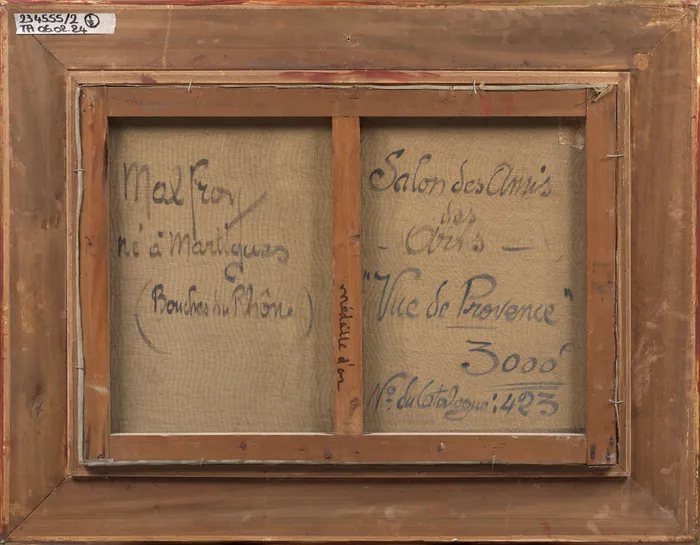 234555/2
TA 06.02.24
Malfroy
né à Martigues
(Bouches du Rhône)
médaille d'or
Salon des Amis
des
- Arts -
"Vue de Provence"
3000f
No. du Catalogue: 423